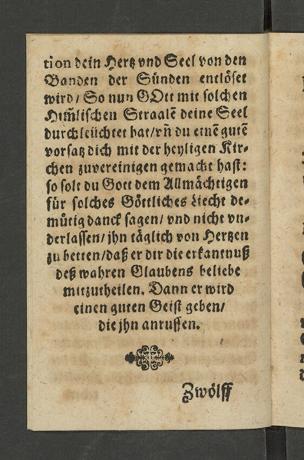 tion dein Hertz vnd Seel von den
Banden der Sünden entlöset
wird/ So nun GOtt mit solchen
Him̃lischen Straalẽ deine Seel
durchleüchtet hat/ vñ du einẽ gutẽ
vorsatz dich mit der heyligen Kir-
chen zuvereinigen gemacht hast:
so solt du Gott dem Allmächtigen
für solches Göttliches Liecht de-
mütig danck sagen/ vnd nicht vn-
derlassen/ jhn täglich von Hertzen
zu betten/ daß er dir die erkantnuß
deß wahren Glaubens beliebe
mitzutheilen. Dann er wird
einen guten Geist geben/
die jhn anruffen.
Zwölff